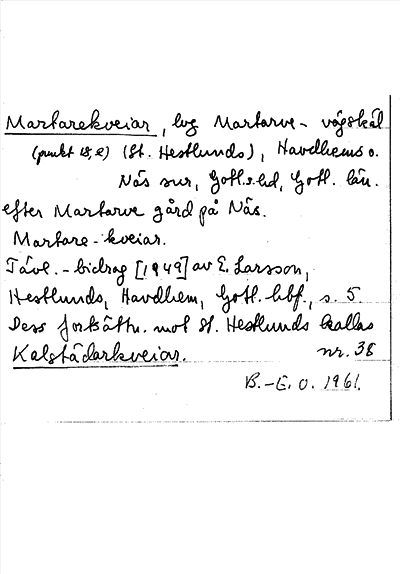 Martarekveiar, lvg Martarve - vägskäl
(punkt 18,2) (St. Hestlunds), Havdhems o.
Näs snr, Gotl. s. hd, Gotl. län.
efter Martarve gård på Näs.
Martare - kveiar.
Tävl. - bidrag [1949] av E. Larsson,
Hestlunds, Havdhem, Gotl. hbf., s. 5
Dess fortsättn. mot St. Hestlunds kallas
Kalstädarkveiar. nr. 38
B.-E. O. 1961.